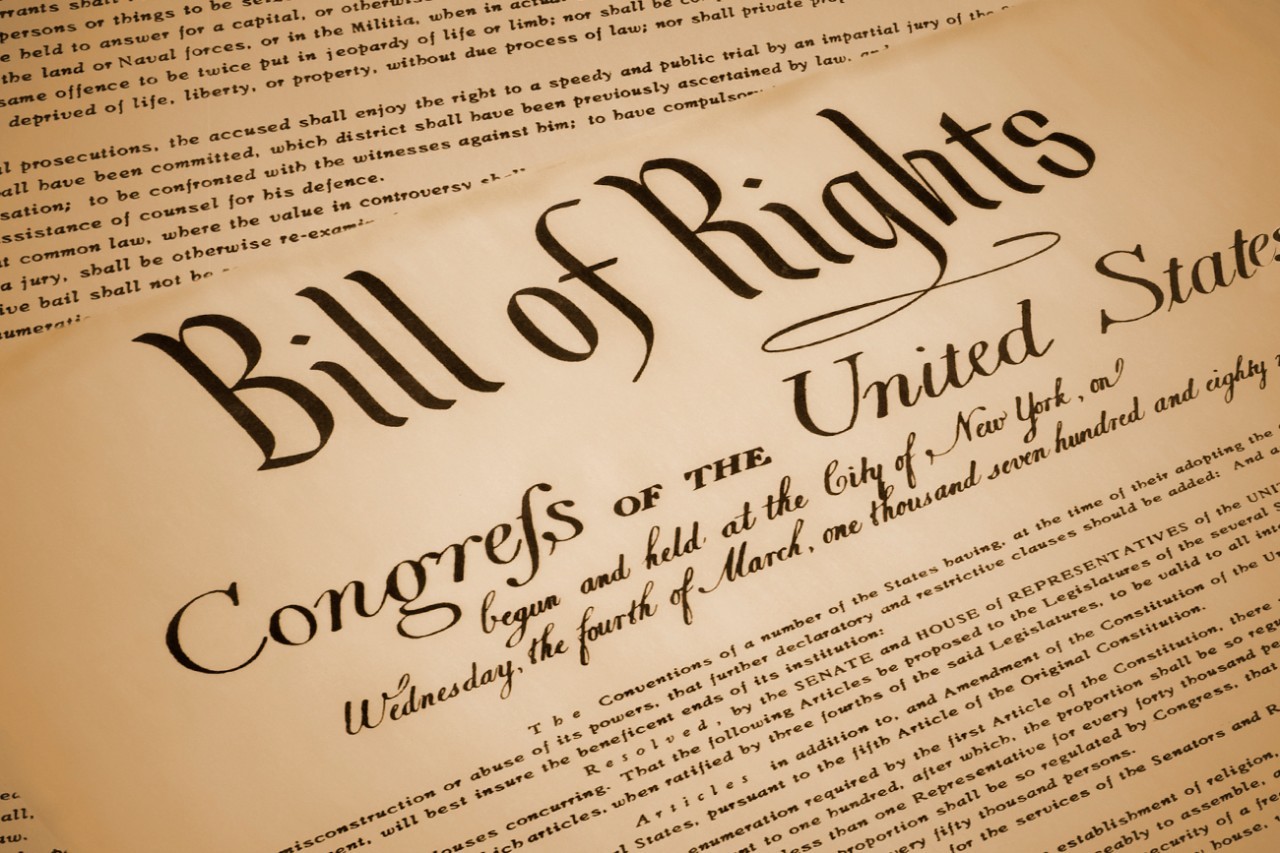 rrants shall
persons or things to be
e held to answer for a capital, or otherwise
the land or Naval forces, or in the Militia, when in actual
same offence to be twice put in jeopardy of life or limb; nor shall be
deprived of life, liberty, or property, without due process of law; nor shall private
l prosecutions, the accused shall enjoy the right to a speedy and public trial by an impartial jury of the
all have been committed, which district shall have been previously ascertained by law,
sation; to be confronted with the witnesses against him; to have compulsory
ssistance of counsel for his defence.
t common law, where the value in controversy
a jury, shall be otherwise re-exami
ive bail shall not be
numerati
Bill of Rights
Congreſs OF THE United States
begun and held at the City of New York, on
Wednesday, the fourth of March, one thousand seven hundred and eighty
The Conventions of a number of the States having, at the time of their adopting the
misconstruction or abuse of its powers, that further declaratory and restrictive clauses should be added: And
ent, will best insure the beneficent ends of its institution:
Resolved, by the SENATE and HOUSE of REPRESENTATIVES of the UNI
ouses concurring. That the following Articles be proposed to the Legislatures of the several
ch articles, when ratified by three fourths of the said Legislatures, to be valid to all
Articles in addition to, and Amendment of the Constitution of the
l States, pursuant to the fifth Article of the Original Constitution.
enumeration required by the first Article of the Constitution, there
nt to one hundred, after which, the proportion shall be so regu
less than one Representative for every forty thousand
proportion shall be so regulated by Congress, that
very fifty thousand persons.
for the services of the Senators and
establishment of religion,
eably to assemble,
ecurity of a
house,
all,
aw.